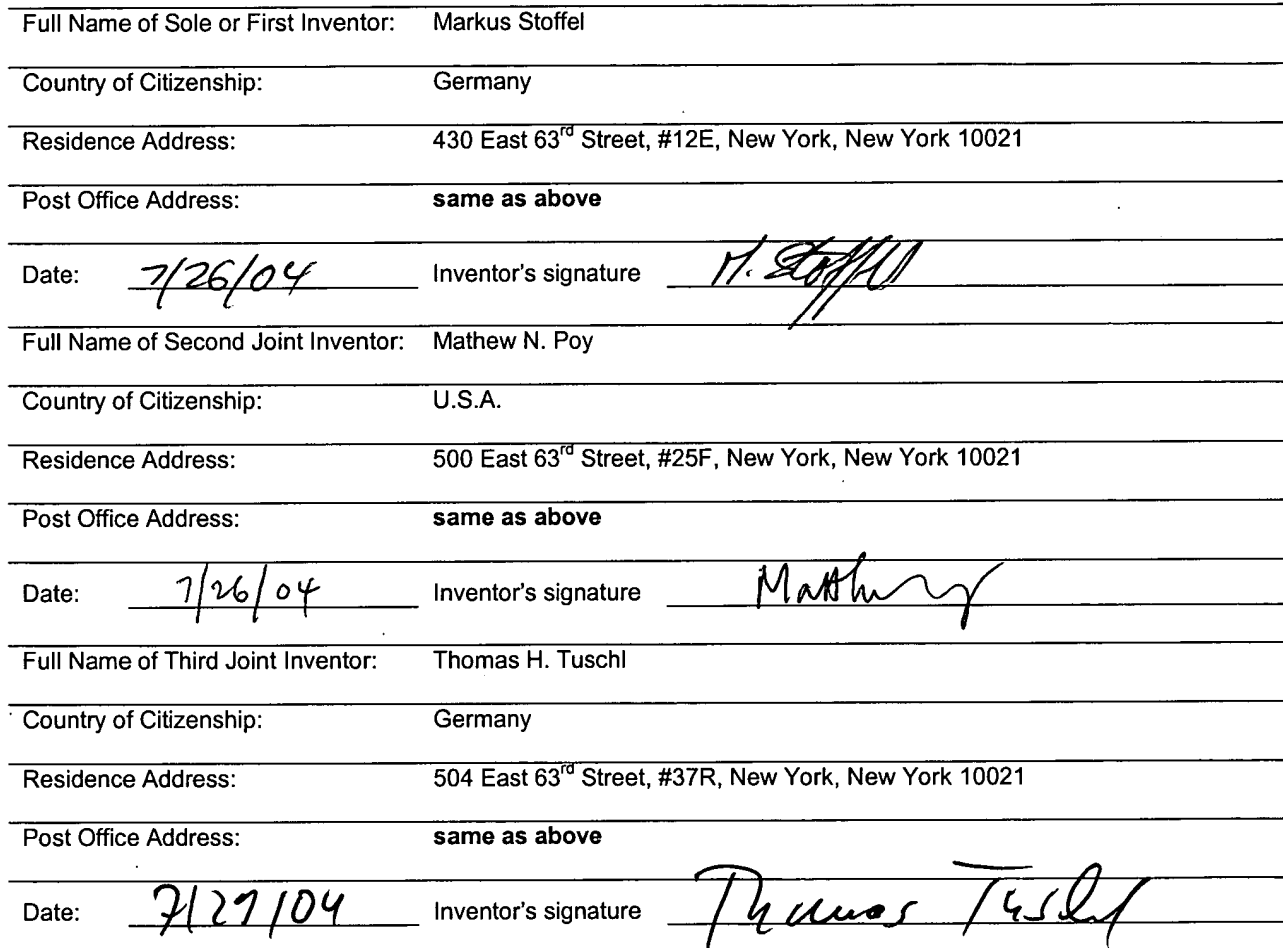 Full Name of Sole or First Inventor: Markus Stoffel
Country of Citizenship: Germany
Residence Address: 430 East 63rd Street, #12E, New York, New York 10021
Post Office Address: same as above
Date: 7/26/04 Inventor's signature M. Stoffel
Full Name of Second Joint Inventor: Mathew N. Poy
Country of Citizenship: U.S.A.
Residence Address: 500 East 63rd Street, #25F, New York, New York 10021
Post Office Address: same as above
Date: 7/26/04 Inventor's signature
Full Name of Third Joint Inventor: Thomas H. Tuschl
Country of Citizenship: Germany
Residence Address: 504 East 63rd Street, #37R, New York, New York 10021
Post Office Address: same as above
Date: 7/27/04 Inventor's signature Thomas Tuschl